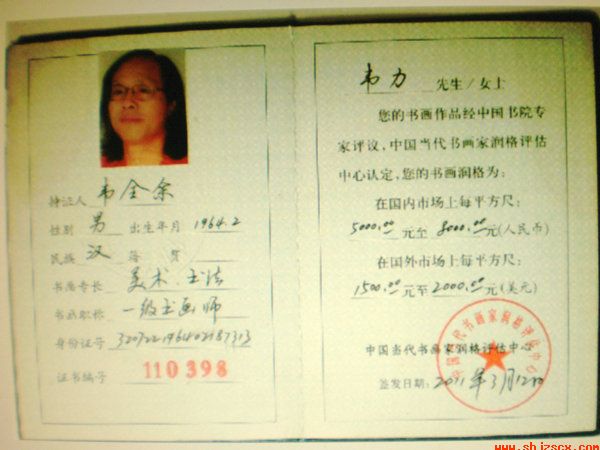 持证人 韦全余
性别 男 出生年月 1964.2
民族 汉 籍贯
书画专长 美术.书法
书画职称 一级书画师
身份证号 320722196402187313
证书编号 110398
韦力 先生/女士
您的书画作品经中国书院专
家评议,中国当代书画家润格评估
中心认定,您的书画润格为:
在国内市场上每平方尺:
5000.00 元至 8000.00 元(人民币)
在国外市场上每平方尺:
1500.00 元至 2000.00 元(美元)
中国当代书画家润格评估中心
中国当代书画家润格评估中心
签发日期: 2011年3月12日
www.shjzscx.com